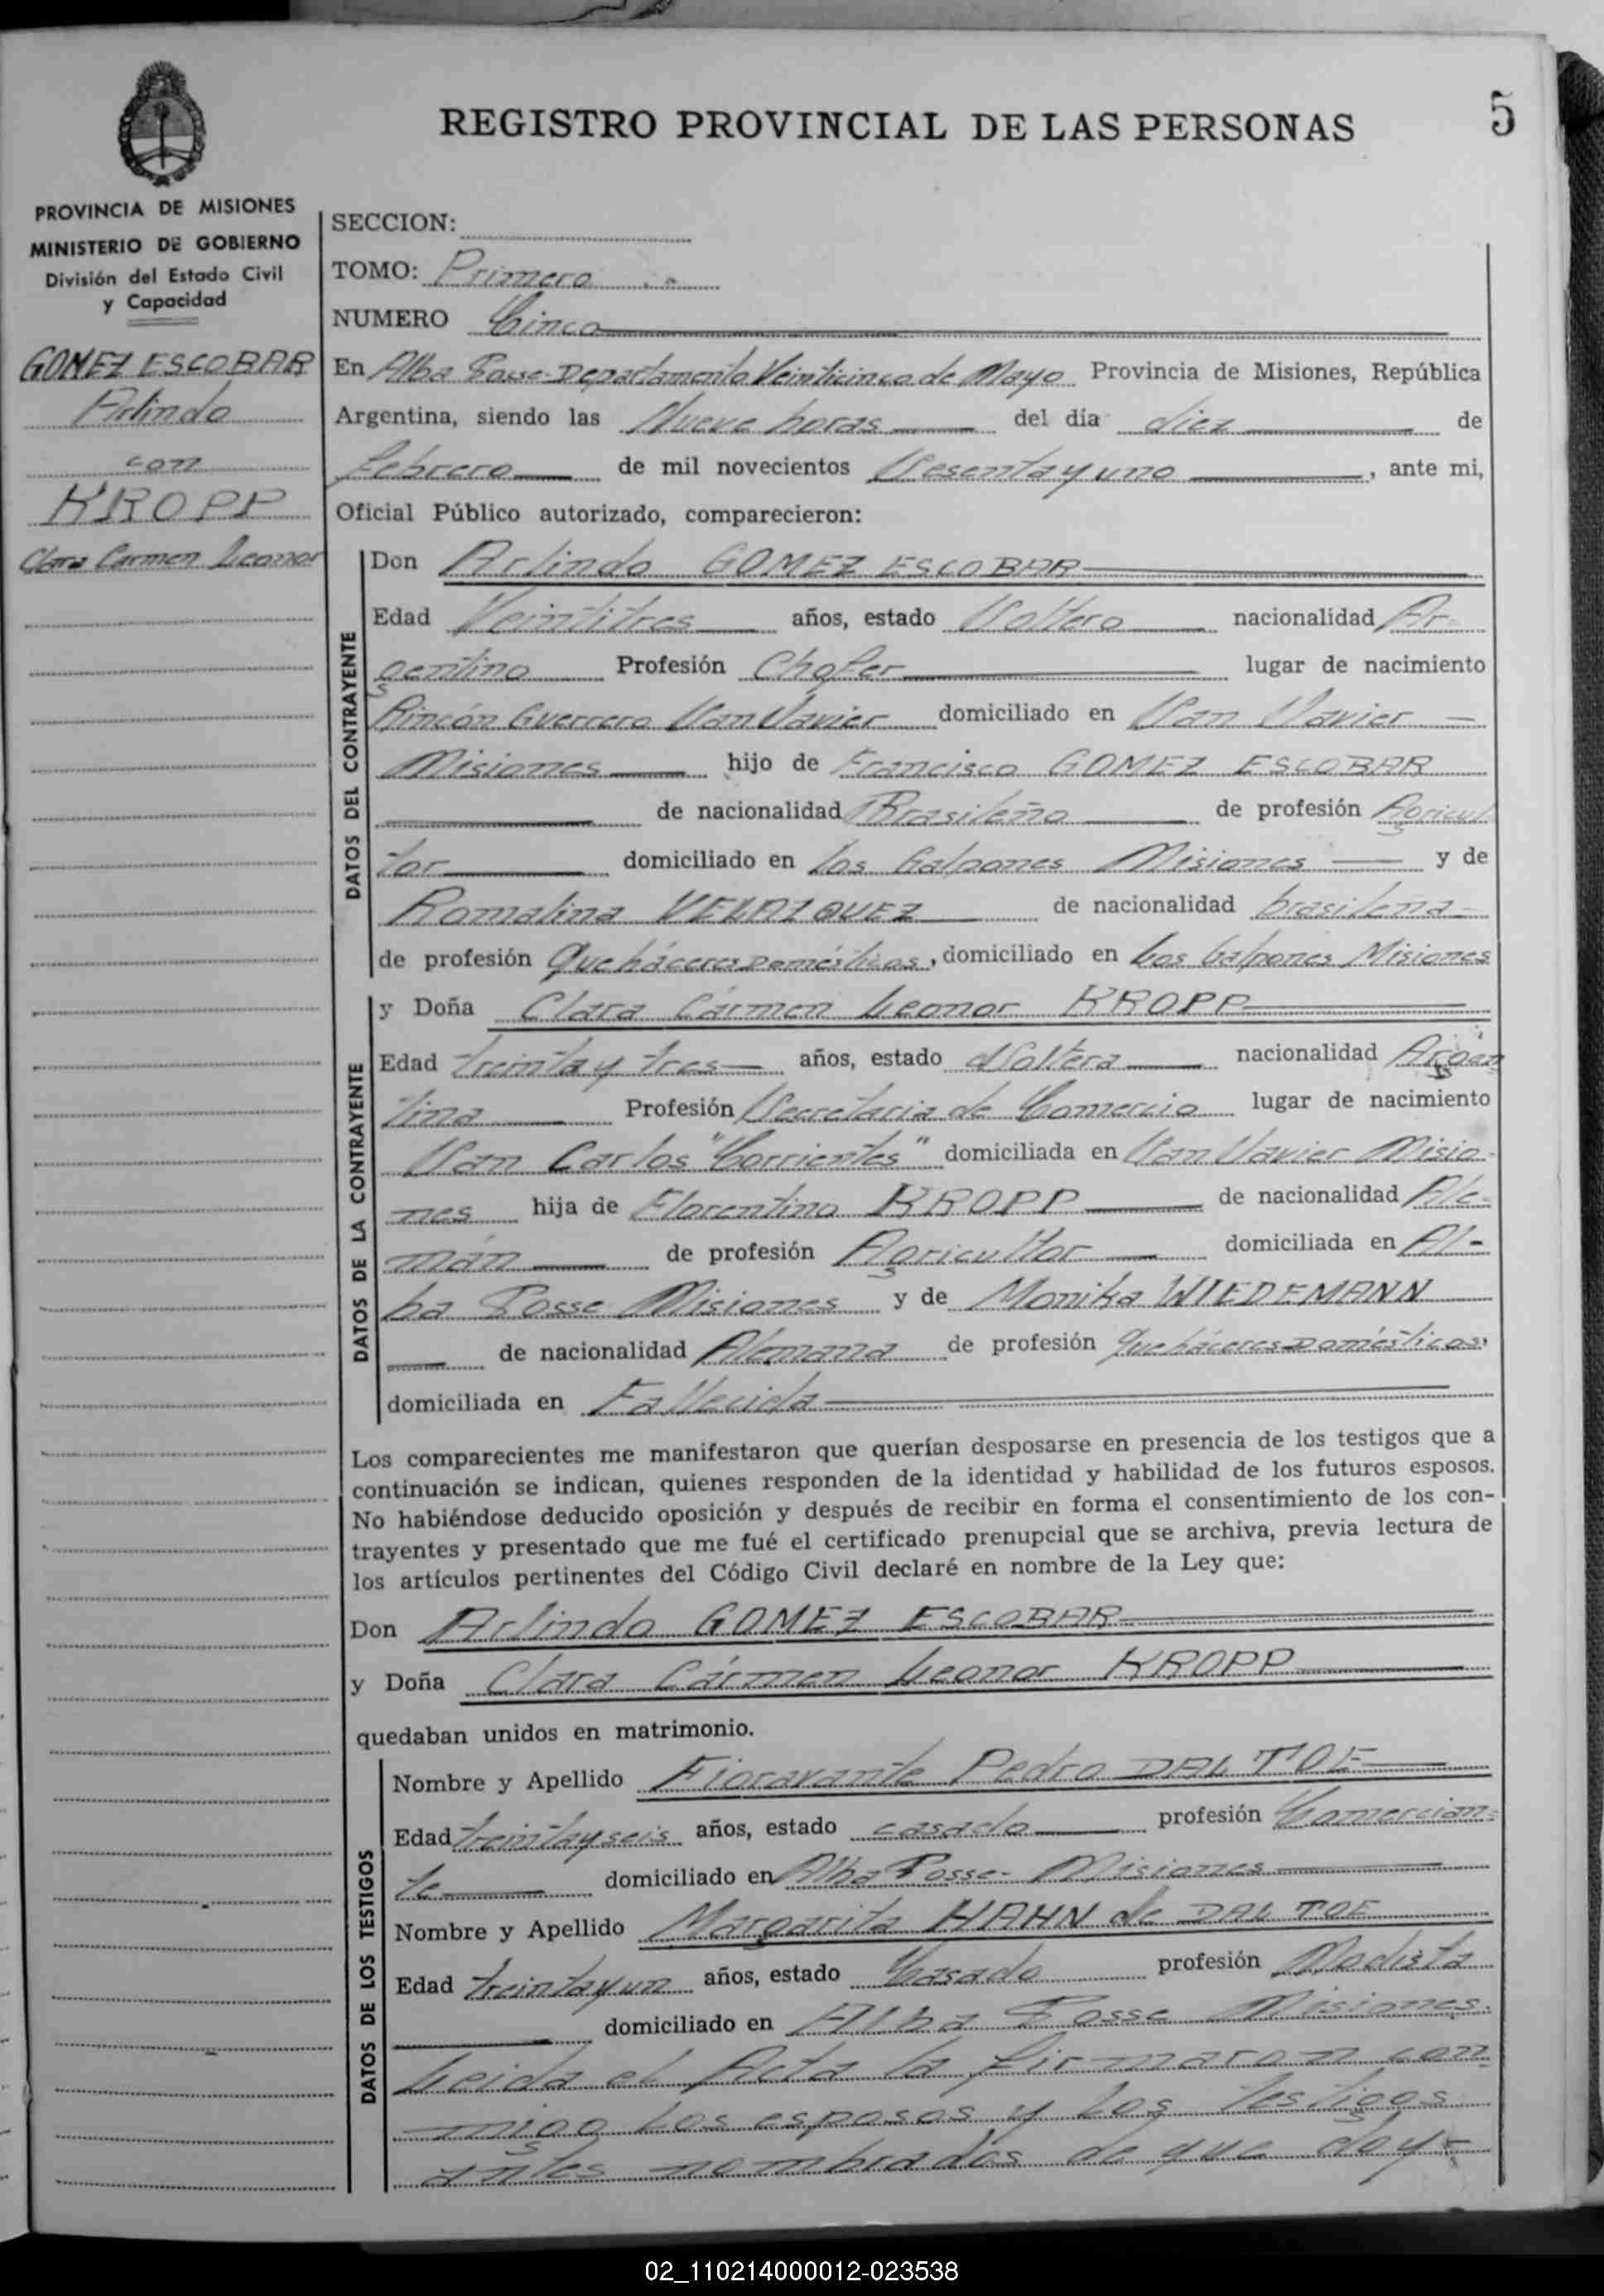 REGISTRO PROVINCIAL DE LAS PERSONAS
5
PROVINCIA DE MISIONES
MINISTERIO DE GOBIERNO
División del Estado Civil
y Capacidad
GOMEZ ESCOBAR
Arlindo
con
KROPP
Clara Carmen Leonor
SECCION:
TOMO: Primero
NUMERO Cinco
En Alba Posse-Departamento Veinticinco de Mayo Provincia de Misiones, República
Argentina, siendo las Nueve horas del día diez de
febrero de mil novecientos Sesenta y uno, ante mi,
Oficial Público autorizado, comparecieron:
DATOS DEL CONTRAYENTE
Don Arlindo GOMEZ ESCOBAR
Edad Veintitres años, estado Soltero nacionalidad Ar-
gentino Profesión Chofer lugar de nacimiento
Rincón Guerrero San Javier domiciliado en San Javier
Misiones hijo de Francisco GOMEZ ESCOBAR
de nacionalidad Brasileño de profesión Agricul
tor domiciliado en los Galpones Misiones y de
Romalina VELAZQUEZ de nacionalidad brasileña
de profesión Que háceres Domésticos, domiciliado en Los Galpones Misiones
DATOS DE LA CONTRAYENTE
y Doña Clara Cármen Leonor KROPP
Edad treinta y tres años, estado Soltera nacionalidad Argen
tina Profesión Secretaria de Comercio lugar de nacimiento
San Carlos "Corrientes" domiciliada en San Javier Misio-
nes hija de Florentino KROPP de nacionalidad Ale-
mán de profesión Agricultor domiciliada en Al-
ba Posse Misiones y de Monika WIEDEMANN
de nacionalidad Alemana de profesión Que háceres Domésticos,
domiciliada en Fallecida
Los comparecientes me manifestaron que querían desposarse en presencia de los testigos que a
continuación se indican, quienes responden de la identidad y habilidad de los futuros esposos.
No habiéndose deducido oposición y después de recibir en forma el consentimiento de los con-
trayentes y presentado que me fué el certificado prenupcial que se archiva, previa lectura de
los artículos pertinentes del Código Civil declaré en nombre de la Ley que:
Don Arlindo GOMEZ ESCOBAR
y Doña Clara Cármen Leonor KROPP
quedaban unidos en matrimonio.
DATOS DE LOS TESTIGOS
Nombre y Apellido Fioravante Pedro DAL TOE
Edad treintayseis años, estado casado profesión Comercian-
te domiciliado en Alba Posse- Misiones
Nombre y Apellido Margarita HAHN de DAL TOE
Edad treintayun años, estado Casado profesión Modista
domiciliado en Alba Posse Misiones.
Leida el Acta la firmaron con
migo los esposos y los testigos
antes nombrados de que doy-
02_110214000012-023538